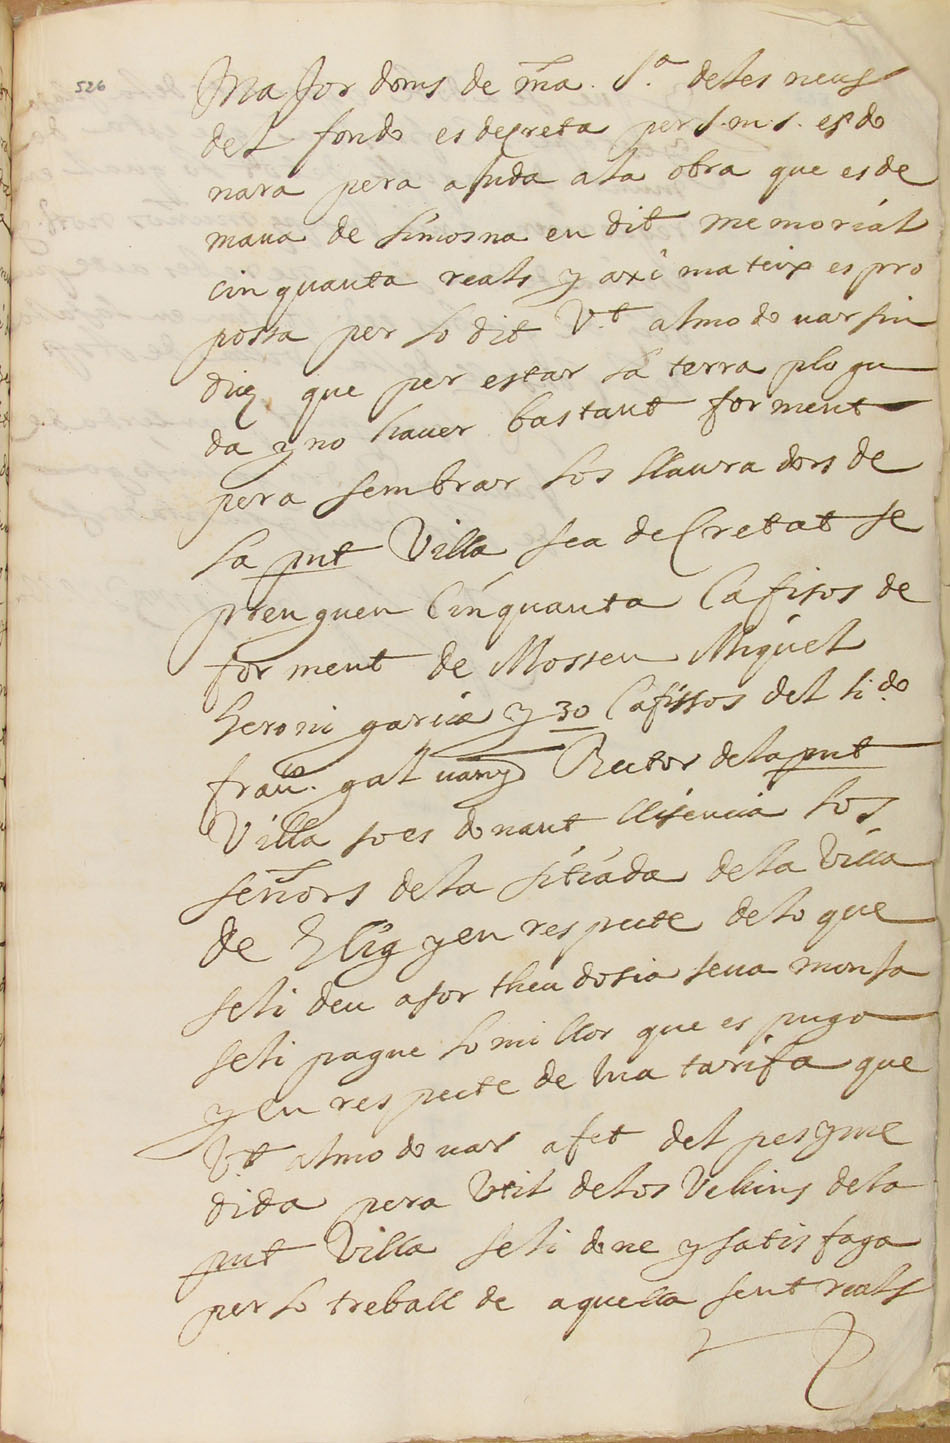 526
Major doms de ñra. S.ª deles neus
del fondo es decreta per s.m.s. es do
nara pera ajuda ala obra que es de
maua de limosna en dit memorial
cinquanta reals y axi mateix es pro
possa per lo dit V.t almodouar sin
dich que per estar la terra plogu
da y no hauer bastant forment
pera sembrar los llauradors de
la pnt Villa sea decretat se
prenguen Cinquanta Cafisos de
forment de Mossen Miguel
Geroni garcia y 30 Cafissos del li.do
fran. galuany Rector dela pnt
Villa so es donant llisencia los
señors dela sitiada dela Villa
de Elig y en respecte delo que
seli deu a sor theudosia seua monja
seli pague lo millor que es puga
y en respecte de una tarifa que
V.t almodouar a fet del pes y me
dida pera Vtil delos Vehins dela
pnt Villa seli done y satisfaga
per lo treball de aquella sent reals